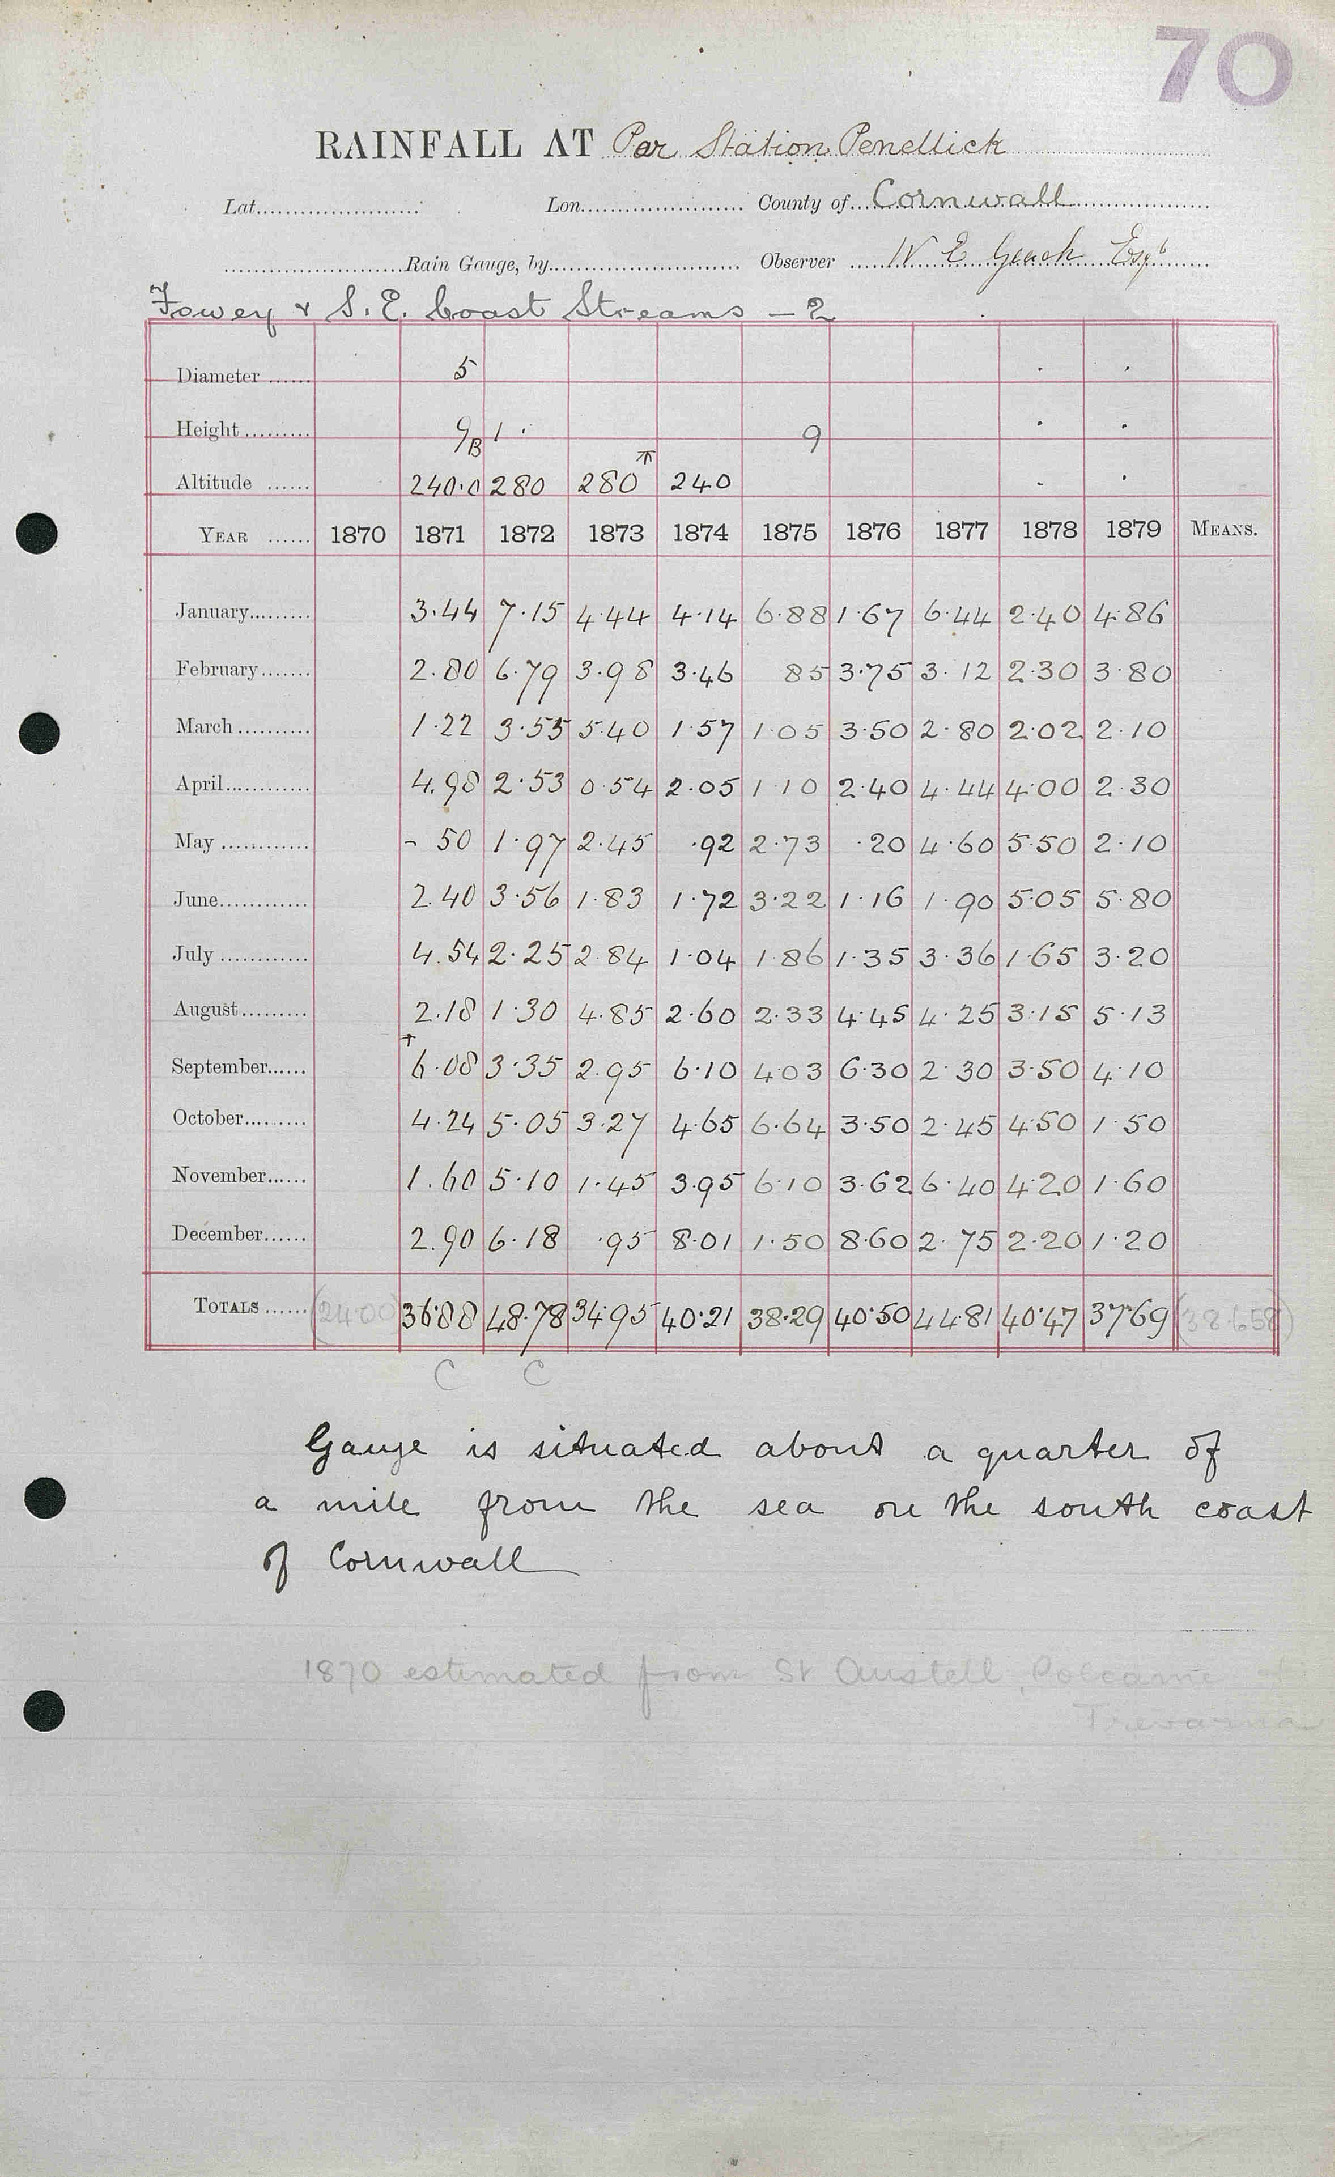 70
RAINFALL AT Par Station Penellick
Lat. Lon. County of Cornwall
Rain Gauge, by Observer W E Geach Esqr
Fowey & S. E. Coast Streams - 2
Diameter 5
Height 9B 1 9
Altitude 240.0 280 280 240
YEAR 1870 1871 1872 1873 1874 1875 1876 1877 1878 1879 MEANS.
January 3.44 7.15 4.44 4.14 6.88 1.67 6.44 2.40 4.86
February 2.80 6.79 3.98 3.46 85 3.75 3.12 2.30 3.80
March 1.22 3.55 5.40 1.57 1.05 3.50 2.80 2.02 2.10
April 4.98 2.53 0.54 2.05 1.10 2.40 4.44 4.00 2.30
May - 50 1.97 2.45 .92 2.73 .20 4.60 5.50 2.10
June 2.40 3.56 1.83 1.72 3.22 1.16 1.90 5.05 5.80
July 4.54 2.25 2.84 1.04 1.86 1.35 3.36 1.65 3.20
August 2.18 1.30 4.85 2.60 2.33 4.45 4.25 3.15 5.13
September 6.08 3.35 2.95 6.10 4.03 6.30 2.30 3.50 4.10
October 4.24 5.05 3.27 4.65 6.64 3.50 2.45 4.50 1.50
November 1.60 5.10 1.45 3.95 6.10 3.62 6.40 4.20 1.60
December 2.90 6.18 .95 8.01 1.50 8.60 2.75 2.20 1.20
TOTALS (24.00) 36.88 48.78 34.95 40.21 38.29 40.50 44.81 40.47 37.69 (38.658)
C C
Gauge is situated about a quarter of
a mile from the sea on the south coast
of Cornwall
1870 estimated from St Austell, Polcarne
Trevarna